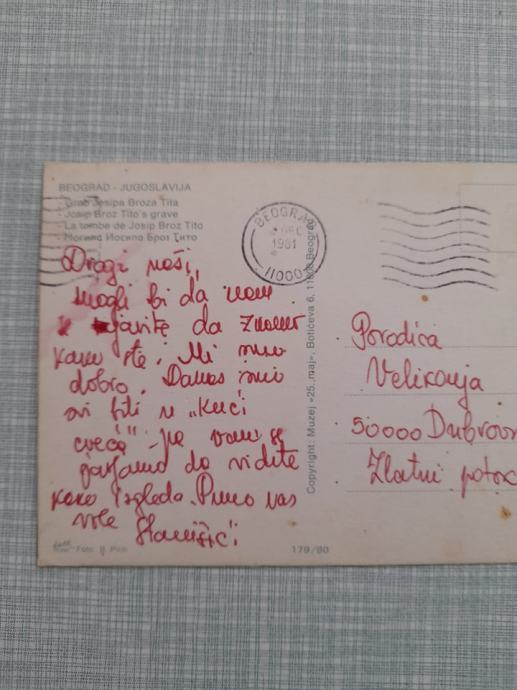 BEOGRAD - JUGOSLAVIJA
- Grob Josipa Broza Tita
- Josip Broz Tito's grave
- La tombe de Josip Broz Tito
- Могила Иосипа Броз Тито
BEOGRAD
1981
11000
Dragi naši,
mogli bi da nam
javite da znamo
kako ste. Mi smo
dobro. Danas smo
svi bili u „Kući
cveća" pa vam se
javljamo da vidite
kako izgleda. Puno vas
vole Stanišići
Copyright: Muzej »25. maj«, Botićeva 6, 11000 Beograd
Porodica
Velikonja
50000 Dubrovn
Zlatni potok
Foto:
179/80